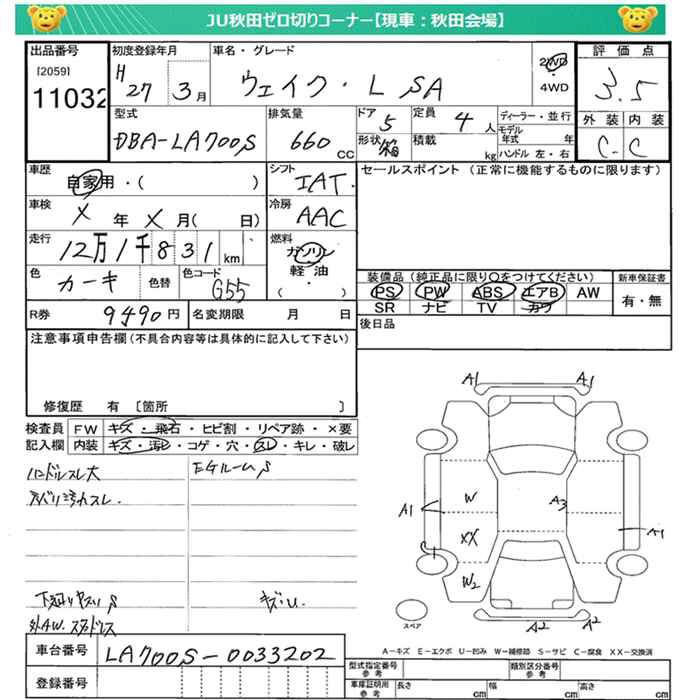 JU秋田ゼロ切りコーナー【現車：秋田会場】
出品番号
[2059]
11032
初度登録年月
H 27 3月
車名・グレード
ウェイク・L SA
2WD
・
4WD
評価点
3.5
型式
DBA-LA700S
排気量
660 CC
ドア 5
形状 箱
定員 4 人
積載 kg
ディーラー・並行
モデル年式 年
ハンドル 左・右
外装 内装
C-C
車歴
自家用・( )
シフト
IAT
セールスポイント (正常に機能するものに限ります)
車検
X年X月( 日)
冷房
AAC
走行
12万1千831km
燃料
ガソリン
軽油
・
( )
色
カーキ
色替
色コード
G55
装備品(純正品に限り○をつけてください)
PS PW ABS エアB AW
SR ナビ TV カワ
新車保証書
有・無
R券 9490円
名変期限 月 日
後日品
注意事項申告欄(不具合内容等は具体的に記入して下さい)
修復歴 有 [箇所 ]
検査員記入欄
FW キズ・飛石・ヒビ割・リペア跡・×要
内装 キズ・汚レ・コゲ・穴・スレ・キレ・破レ
ハンドルスレ大
EGルームS
下廻りサビS
キズU.
外AW. スタッドレス
A1 A1
A1 W A3 A1
XX
W2
スペア
A2 A2
A-キズ E-エクボ U-凹み W-補修跡 S-サビ C-腐食 XX-交換済
車台番号 LA700S-0033202
登録番号
型式指定番号 参考
類別区分番号 参考
車庫証明用 参考
長さ cm 幅 cm 高さ cm